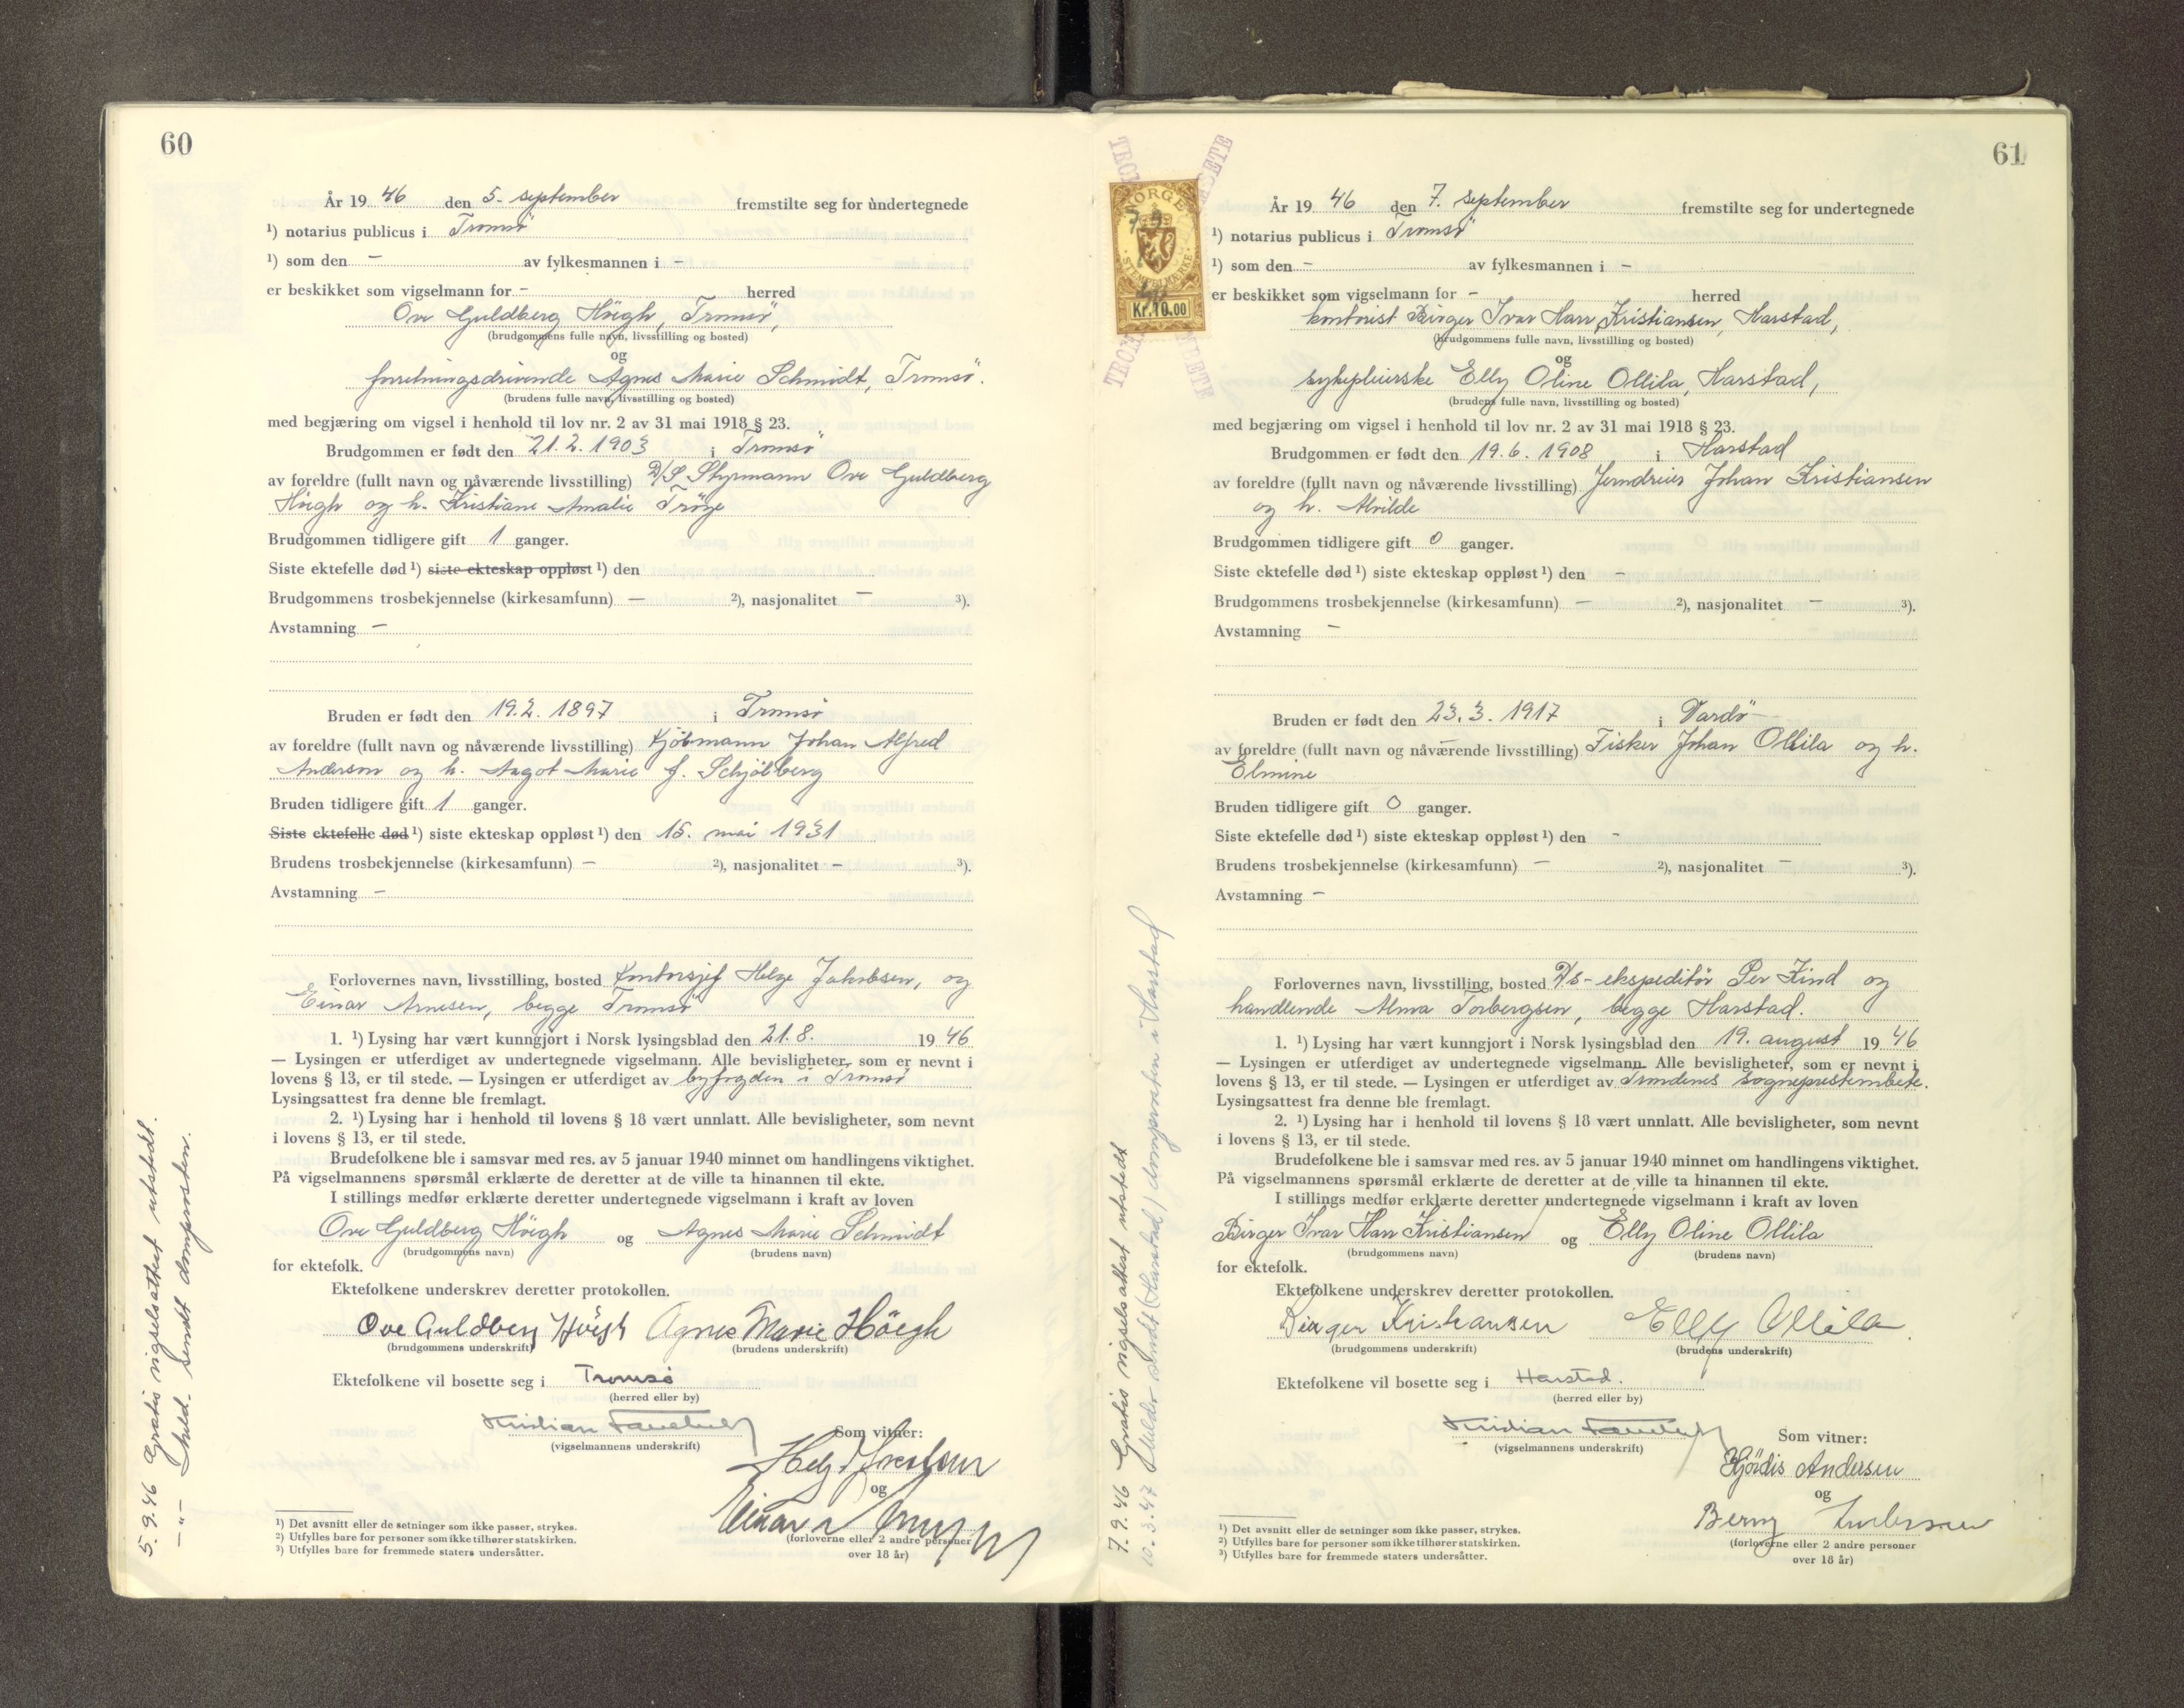 60
År 19 46 den 5. september fremstilte seg for undertegnede
¹) notarius publicus i Tromsö
¹) som den – av fylkesmannen i –
er beskikket som vigselmann for – herred
Ove Guldberg Höigh, Tromsö,
(brudgommens fulle navn, livsstilling og bosted)
og
forretningsdrivende Agnes Marie Schmidt, Tromsö.
(brudens fulle navn, livsstilling og bosted)
med begjæring om vigsel i henhold til lov nr. 2 av 31 mai 1918 § 23.
Brudgommen er født den 21.2.1903 i Tromsö
av foreldre (fullt navn og nåværende livsstilling) D/S Styrmann Ove Guldberg
Höigh og h. Kristiane Amalie Tröye
Brudgommen tidligere gift 1 ganger.
Siste ektefelle død ¹) siste ekteskap oppløst ¹) den
Brudgommens trosbekjennelse (kirkesamfunn) – ²), nasjonalitet – ³).
Avstamning –
Bruden er født den 19.2.1897 i Tromsö
av foreldre (fullt navn og nåværende livsstilling) Kjöbmann Johan Alfred
Anderson og h. Aagot Marie f. Schjölberg
Bruden tidligere gift 1 ganger.
Siste ektefelle død ¹) siste ekteskap oppløst ¹) den 15. mai 1931
Brudens trosbekjennelse (kirkesamfunn) – ²), nasjonalitet – ³).
Avstamning –
Forlovernes navn, livsstilling, bosted Kontorsjef Helge Jakobsen, og
Einar Arnesen, begge Tromsö
1. ¹) Lysing har vært kunngjort i Norsk lysingsblad den 21.8. 19 46
— Lysingen er utferdiget av undertegnede vigselmann. Alle bevisligheter, som er nevnt i
lovens § 13, er til stede. — Lysingen er utferdiget av byfogden i Tromsö
Lysingsattest fra denne ble fremlagt.
2. ¹) Lysing har i henhold til lovens § 18 vært unnlatt. Alle bevisligheter, som nevnt
i lovens § 13, er til stede.
Brudefolkene ble i samsvar med res. av 5 januar 1940 minnet om handlingens viktighet.
På vigselmannens spørsmål erklærte de deretter at de ville ta hinannen til ekte.
I stillings medfør erklærte deretter undertegnede vigselmann i kraft av loven
Ove Guldberg Höigh og Agnes Marie Schmidt
(brudgommens navn) (brudens navn)
for ektefolk.
Ektefolkene underskrev deretter protokollen.
Ove Guldberg Höigh Agnes Marie Höegh
(brudgommens underskrift) (brudens underskrift)
Ektefolkene vil bosette seg i Tromsø
(herred eller by)
Kristian
(vigselmannens underskrift)
Som vitner:
Helge Jakobsen
og
Einar Arnesen
(forloverne eller 2 andre personer
over 18 år)
¹) Det avsnitt eller de setninger som ikke passer, strykes.
²) Utfylles bare for personer som ikke tilhører statskirken.
³) Utfylles bare for fremmede staters undersåtter.
5.9.46 Gratis vigselsattest utstedt.
–"– Meld. sendt domprosten.
61
NORGE
STEMPELMERKE
Kr. 10.00
År 19 46 den 7. september fremstilte seg for undertegnede
¹) notarius publicus i Tromsö
¹) som den – av fylkesmannen i –
er beskikket som vigselmann for – herred
kontorist Birger Ivar Harr Kristiansen, Harstad,
(brudgommens fulle navn, livsstilling og bosted)
og
sykepleierske Elly Oline Ollila, Harstad,
(brudens fulle navn, livsstilling og bosted)
med begjæring om vigsel i henhold til lov nr. 2 av 31 mai 1918 § 23.
Brudgommen er født den 19.6.1908 i Harstad
av foreldre (fullt navn og nåværende livsstilling) Jerndreier Johan Kristiansen
og h. Alvilde
Brudgommen tidligere gift 0 ganger.
Siste ektefelle død ¹) siste ekteskap oppløst ¹) den –
Brudgommens trosbekjennelse (kirkesamfunn) – ²), nasjonalitet – ³).
Avstamning –
Bruden er født den 23.3.1917 i Vardö
av foreldre (fullt navn og nåværende livsstilling) Fisker Johan Ollila og h.
Elmine
Bruden tidligere gift 0 ganger.
Siste ektefelle død ¹) siste ekteskap oppløst ¹) den –
Brudens trosbekjennelse (kirkesamfunn) – ²), nasjonalitet – ³).
Avstamning –
Forlovernes navn, livsstilling, bosted D/s-ekspeditör Per Kind og
handlende Alma Torbergsen, begge Harstad.
1. ¹) Lysing har vært kunngjort i Norsk lysingsblad den 19. august 19 46
— Lysingen er utferdiget av undertegnede vigselmann. Alle bevisligheter, som er nevnt i
lovens § 13, er til stede. — Lysingen er utferdiget av Trondenes sogneprestembete.
Lysingsattest fra denne ble fremlagt.
2. ¹) Lysing har i henhold til lovens § 18 vært unnlatt. Alle bevisligheter, som nevnt
i lovens § 13, er til stede.
Brudefolkene ble i samsvar med res. av 5 januar 1940 minnet om handlingens viktighet.
På vigselmannens spørsmål erklærte de deretter at de ville ta hinannen til ekte.
I stillings medfør erklærte deretter undertegnede vigselmann i kraft av loven
Birger Ivar Harr Kristiansen og Elly Oline Ollila
(brudgommens navn) (brudens navn)
for ektefolk.
Ektefolkene underskrev deretter protokollen.
Birger Kristiansen Elly Ollila.
(brudgommens underskrift) (brudens underskrift)
Ektefolkene vil bosette seg i Harstad.
(herred eller by)
Kristian
(vigselmannens underskrift)
Som vitner:
Hjördis Andersen
og
Berny Andersen
(forloverne eller 2 andre personer
over 18 år)
¹) Det avsnitt eller de setninger som ikke passer, strykes.
²) Utfylles bare for personer som ikke tilhører statskirken.
³) Utfylles bare for fremmede staters undersåtter.
7.9.46 Gratis vigselsattest utstedt
10.3.47 Melding sendt (Harstad) domprosten i Harstad